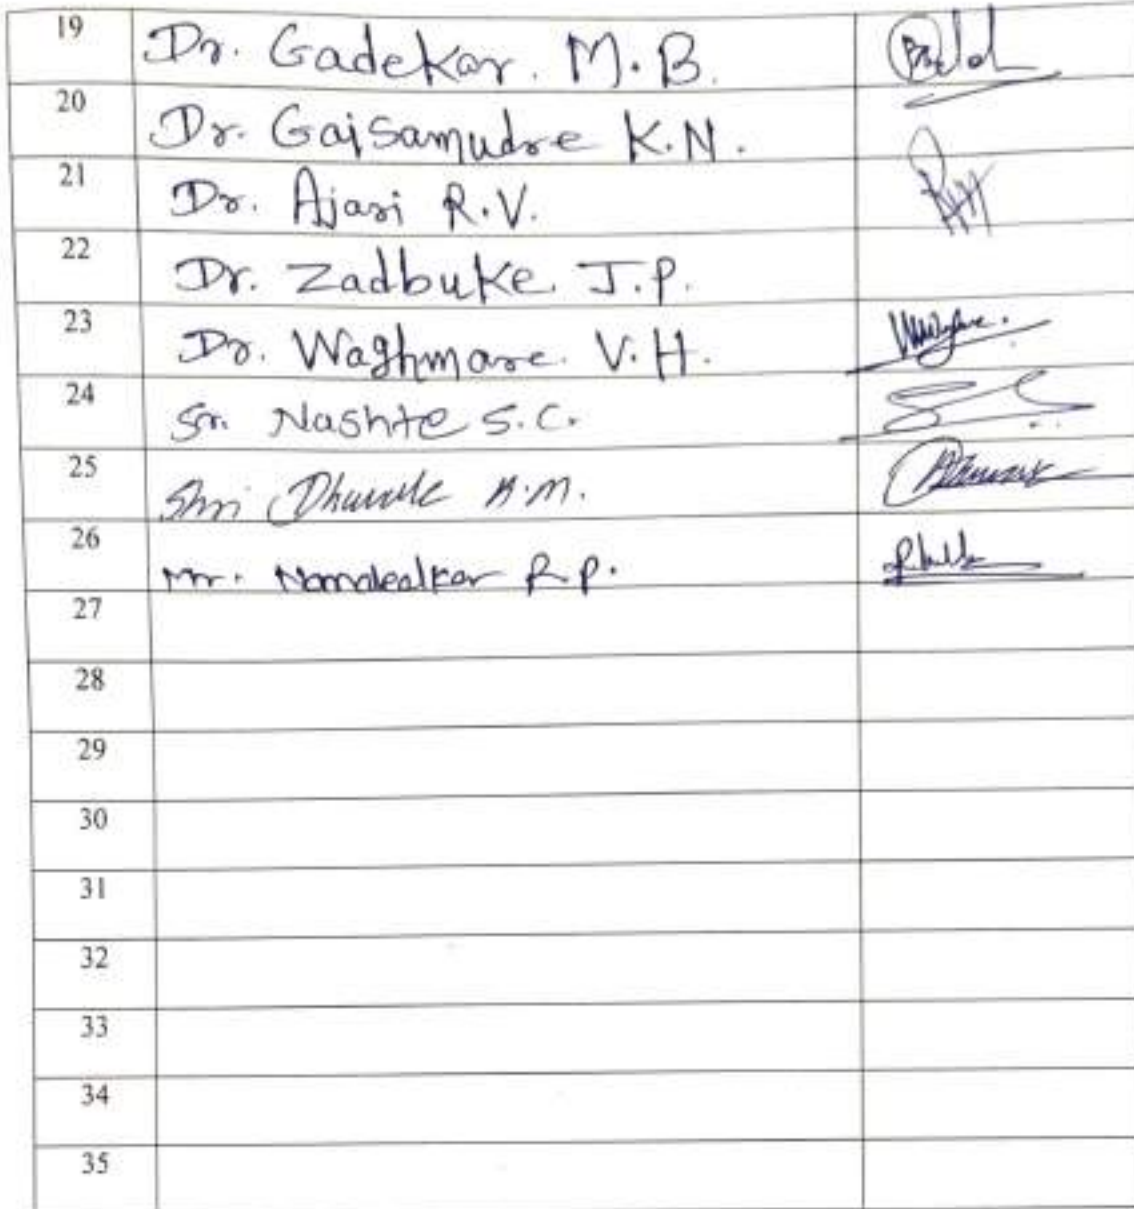 19 Dr. Gadekar. M.B.
20 Dr. Gaisamudre K.N.
21 Dr. Ajari R.V.
22 Dr. Zadbuke. J.P.
23 Dr. Waghmare. V.H.
24 Sr. Nashte S.C.
25 Shri B.M.
26 Mr. R.P.
27
28
29
30
31
32
33
34
35